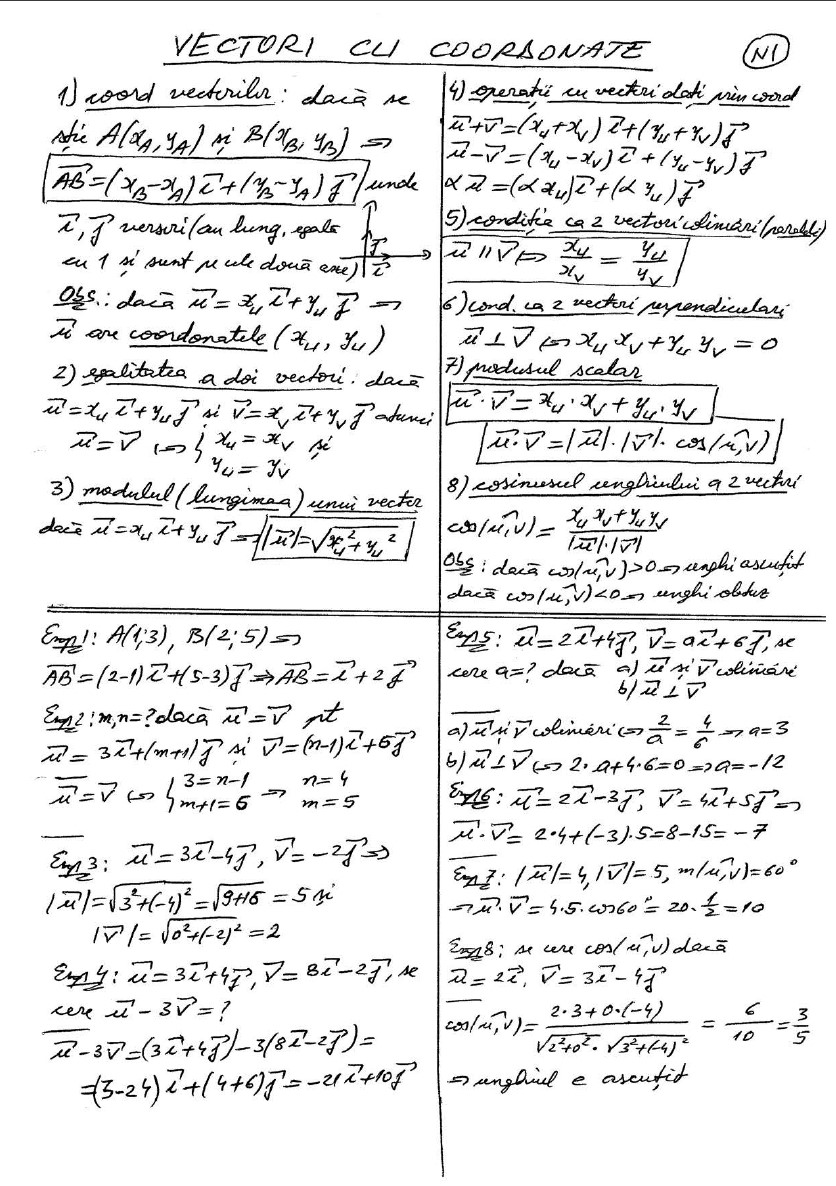 VECTORI CU COORDONATE
N1
1) coord vectorilor: dacă se
știe A(x_A, y_A) și B(x_B, y_B) ⇒
AB⃗ = (x_B - x_A) i⃗ + (y_B - y_A) j⃗ unde
i⃗, j⃗ versori (au lung. egală
cu 1 și sunt pe cele două axe)
j⃗
i⃗
Obs.: dacă u⃗ = x_u i⃗ + y_u j⃗ ⇒
u⃗ are coordonatele (x_u, y_u)
2) egalitatea a doi vectori: dacă
u⃗ = x_u i⃗ + y_u j⃗ și v⃗ = x_v i⃗ + y_v j⃗ atunci
u⃗ = v⃗ ⇔ { x_u = x_v și
y_u = y_v
3) modulul (lungimea) unui vector
dacă u⃗ = x_u i⃗ + y_u j⃗ ⇒ |u⃗| = √(x_u² + y_u²)
4) operații cu vectori dați prin coord
u⃗ + v⃗ = (x_u + x_v) i⃗ + (y_u + y_v) j⃗
u⃗ - v⃗ = (x_u - x_v) i⃗ + (y_u - y_v) j⃗
α u⃗ = (α x_u) i⃗ + (α y_u) j⃗
5) condiția ca 2 vectori coliniari (paraleli)
u⃗ ∥ v⃗ ⇔ x_u/x_v = y_u/y_v
6) cond. ca 2 vectori perpendiculari
u⃗ ⊥ v⃗ ⇔ x_u x_v + y_u y_v = 0
7) produsul scalar
u⃗ · v⃗ = x_u · x_v + y_u · y_v
u⃗ · v⃗ = |u⃗| · |v⃗| · cos(u,v)
8) cosinusul unghiului a 2 vectori
cos(u,v) = (x_u x_v + y_u y_v)/(|u⃗| · |v⃗|)
Obs: dacă cos(u,v) > 0 ⇒ unghi ascuțit
dacă cos(u,v) < 0 ⇒ unghi obtuz
Exp1: A(1;3), B(2;5) ⇒
AB⃗ = (2-1) i⃗ + (5-3) j⃗ ⇒ AB⃗ = i⃗ + 2 j⃗
Exp2: m,n = ? dacă u⃗ = v⃗ pt
u⃗ = 3i⃗ + (m+1) j⃗ și v⃗ = (n-1) i⃗ + 6 j⃗
u⃗ = v⃗ ⇔ { 3 = n-1 ⇒ n = 4
m+1 = 6 m = 5
Exp3: u⃗ = 3i⃗ - 4j⃗, v⃗ = -2j⃗ ⇒
|u⃗| = √(3² + (-4)²) = √(9+16) = 5 și
|v⃗| = √(0² + (-2)²) = 2
Exp4: u⃗ = 3i⃗ + 4j⃗, v⃗ = 8i⃗ - 2j⃗, se
cere u⃗ - 3v⃗ = ?
u⃗ - 3v⃗ = (3i⃗ + 4j⃗) - 3(8i⃗ - 2j⃗) =
= (3-24) i⃗ + (4+6) j⃗ = -21i⃗ + 10j⃗
Exp5: u⃗ = 2i⃗ + 4j⃗, v⃗ = a i⃗ + 6j⃗, se
cere a = ? dacă a) u⃗ și v⃗ coliniari
b) u⃗ ⊥ v⃗
a) u⃗ și v⃗ coliniari ⇔ 2/a = 4/6 ⇒ a = 3
b) u⃗ ⊥ v⃗ ⇔ 2·a + 4·6 = 0 ⇒ a = -12
Exp6: u⃗ = 2i⃗ - 3j⃗, v⃗ = 4i⃗ + 5j⃗ ⇒
u⃗ · v⃗ = 2·4 + (-3)·5 = 8 - 15 = -7
Exp7: |u⃗| = 4, |v⃗| = 5, m(u,v) = 60°
⇒ u⃗ · v⃗ = 4·5·cos60° = 20 · 1/2 = 10
Exp8: se cere cos(u,v) dacă
u⃗ = 2i⃗, v⃗ = 3i⃗ - 4j⃗
cos(u,v) = (2·3 + 0·(-4))/(√(2²+0²) · √(3²+(-4)²)) = 6/10 = 3/5
⇒ unghiul e ascuțit